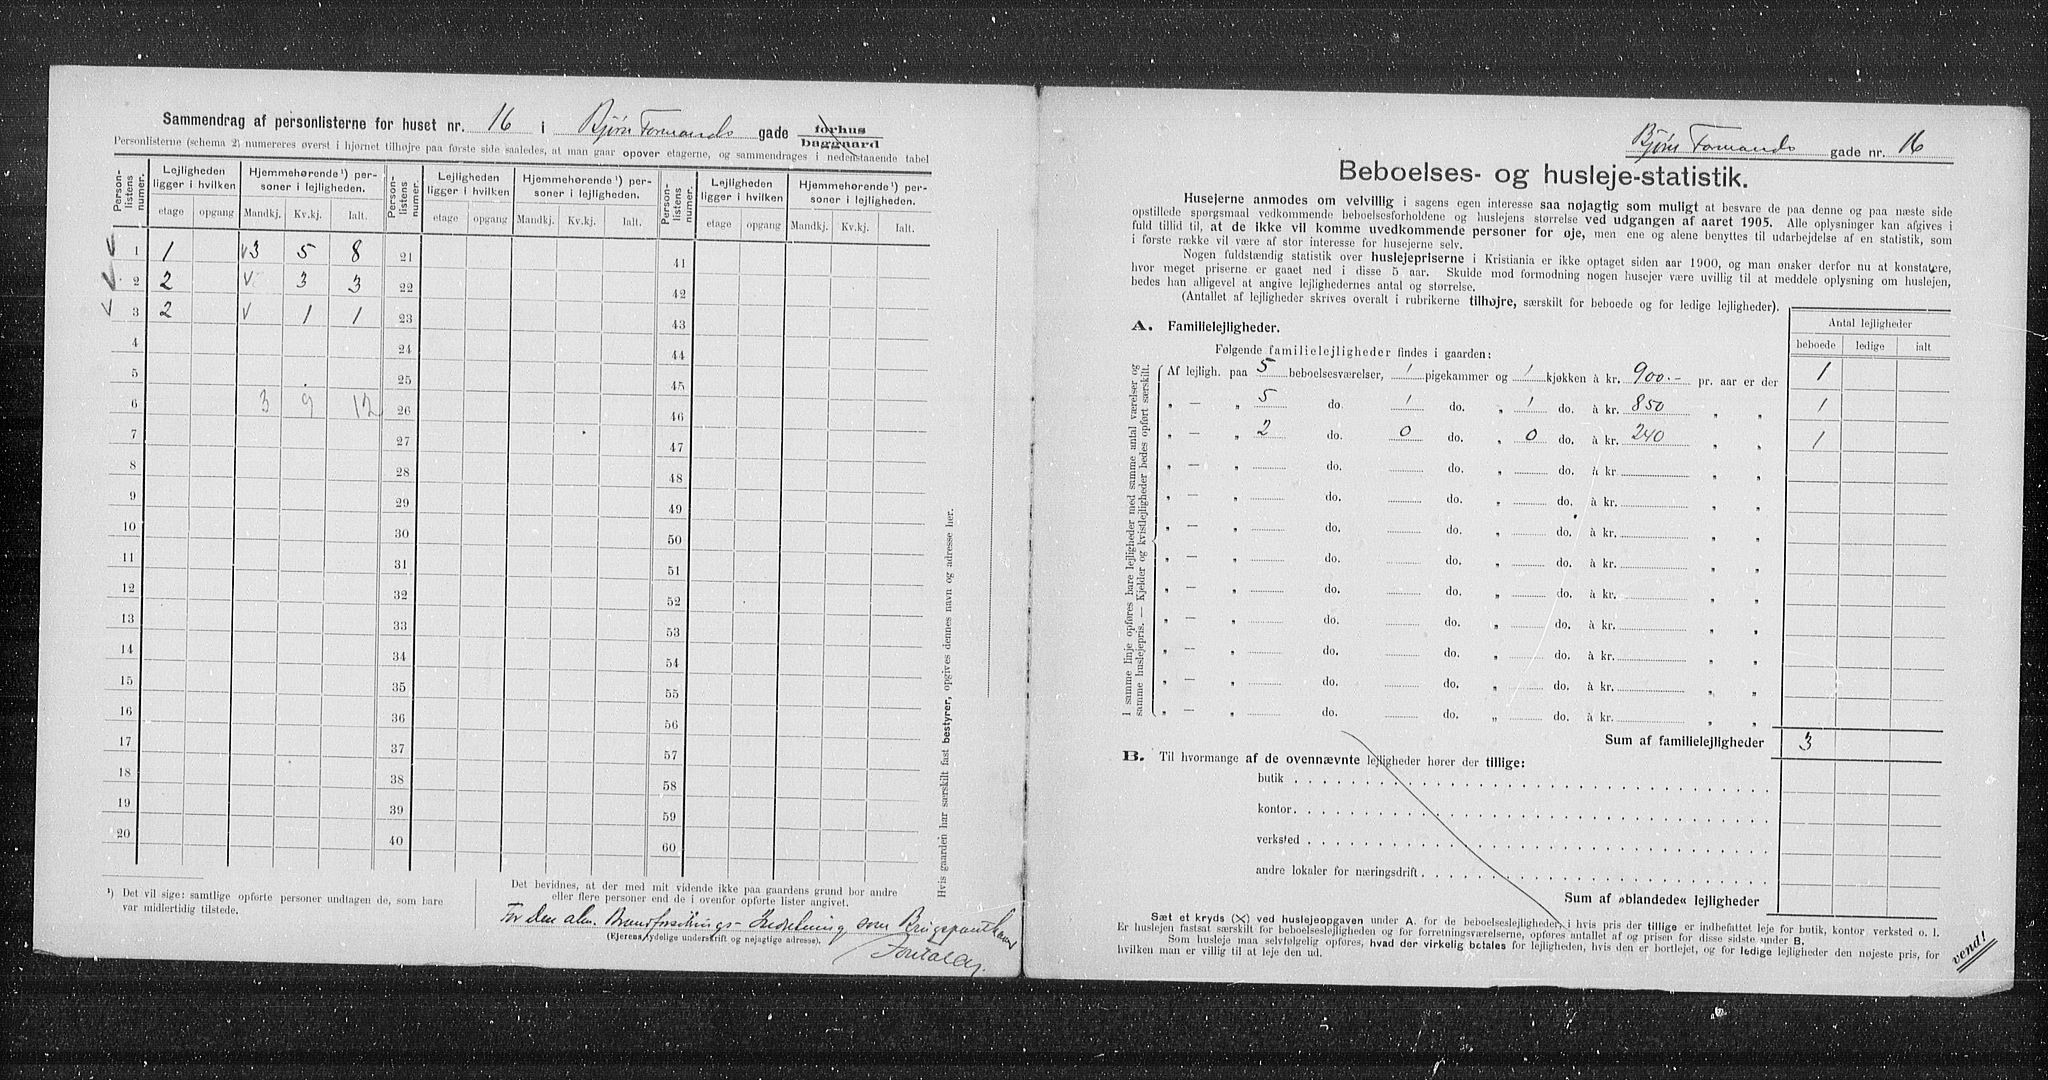 Sammendrag af personlisterne for huset nr. 16 i Bjørn Formands gade forhus baggaard
Personlisterne (schema 2) numereres øverst i hjørnet tilhøjre paa første side saaledes, at man gaar opover etagerne, og sammendrages i nedenstaaende tabel
Person-listens numer. Lejligheden ligger i hvilken Hjemmehørende ¹) personer i lejligheden. Person-listens numer. Lejligheden ligger i hvilken Hjemmehørende ¹) personer i lejligheden. Person-listens numer. Lejligheden ligger i hvilken Hjemmehørende ¹) personer i lejligheden.
etage opgang Mandkj. Kv.kj. Ialt. etage opgang Mandkj. Kv.kj. Ialt. etage opgang Mandkj. Kv.kj. Ialt.
V 1 1 V 3 5 8 21 41
V 2 2 V 3 3 22 42
V 3 2 V 1 1 23 43
4 24 44
5 25 45
6 3 9 12 26 46
7 27 47
8 28 48
9 29 49
10 30 50
11 31 51
12 32 52
13 33 53
14 34 54
15 35 55
16 36 56
17 37 57
18 38 58
19 39 59
20 40 60
Hvis gaarden har særskilt fast bestyrer, opgives dennes navn og adresse her.
¹) Det vil sige: samtlige opførte personer undtagen de, som bare
var midlertidig tilstede.
Det bevidnes, at der med mit vidende ikke paa gaardens grund bor andre
eller flere personer end de i ovenfor opførte lister angivet.
For den alm. Brandforsikrings-Indretning som Brugspanthaver
(Ejerens tydelige underskrift og nøjagtige adresse).
Bjørn Formands gade nr. 16
Beboelses- og husleje-statistik.
Husejerne anmodes om velvillig i sagens egen interesse saa nøjagtig som muligt at besvare de paa denne og paa næste side
opstillede spørgsmaal vedkommende beboelsesforholdene og huslejens størrelse ved udgangen af aaret 1905. Alle oplysninger kan afgives i
fuld tillid til, at de ikke vil komme uvedkommende personer for øje, men ene og alene benyttes til udarbejdelse af en statistik, som
i første række vil være af stor interesse for husejerne selv.
Nogen fuldstændig statistik over huslejepriserne i Kristiania er ikke optaget siden aar 1900, og man ønsker derfor nu at konstatere,
hvor meget priserne er gaaet ned i disse 5 aar. Skulde mod formodning nogen husejer være uvillig til at meddele oplysning om huslejen,
bedes han alligevel at angive lejlighedernes antal og størrelse.
(Antallet af lejligheder skrives overalt i rubrikerne tilhøjre, særskilt for beboede og for ledige lejligheder).
Antal lejligheder
beboede ledige ialt
A. Familielejligheder.
Følgende familielejligheder findes i gaarden:
I samme linje opføres bare lejligheder med samme antal værelser og
samme huslejepris. — Kjelder og kvistlejligheder bedes opført særskilt.
Af lejligh. paa 5 beboelsesværelser, 1 pigekammer og 1 kjøkken à kr. 900.- pr. aar er der 1
„ — „ 5 do. 1 do. „ 1 do. à kr. 850 „ „ 1
„ — „ 2 do. 0 do. „ 0 do. à kr. 240 „ „ 1
„ — „ do. do. „ do. à kr. „ „
„ — „ do. do. „ do. à kr. „ „
„ — „ do. do. „ do. à kr. „ „
„ — „ do. do. „ do. à kr. „ „
„ — „ do. do. „ do. à kr. „ „
„ — „ do. do. „ do. à kr. „ „
„ — „ do. do. „ do. à kr. „ „
„ — „ do. do. „ do. à kr. „ „
„ — „ do. do. „ do. à kr. „ „
Sum af familielejligheder 3
B. Til hvormange af de ovennævnte lejligheder hører der tillige:
butik
kontor
verksted
andre lokaler for næringsdrift
Sum af »blandede« lejligheder
Sæt et kryds (X) ved huslejeopgaven under A. for de beboelseslejligheder, i hvis pris der tillige er indbefattet leje for butik, kontor verksted o. l.
Er huslejen fastsat særskilt for beboelseslejligheden og for forretningsværelserne, opføres antallet af og prisen for disse sidste under B.
Som husleje maa selvfølgelig opføres, hvad der virkelig betales for lejligheden, hvis den er bortlejet, og for ledige lejligheder den nøjeste pris, for
hvilken man er villig til at leje den ud.
vend!